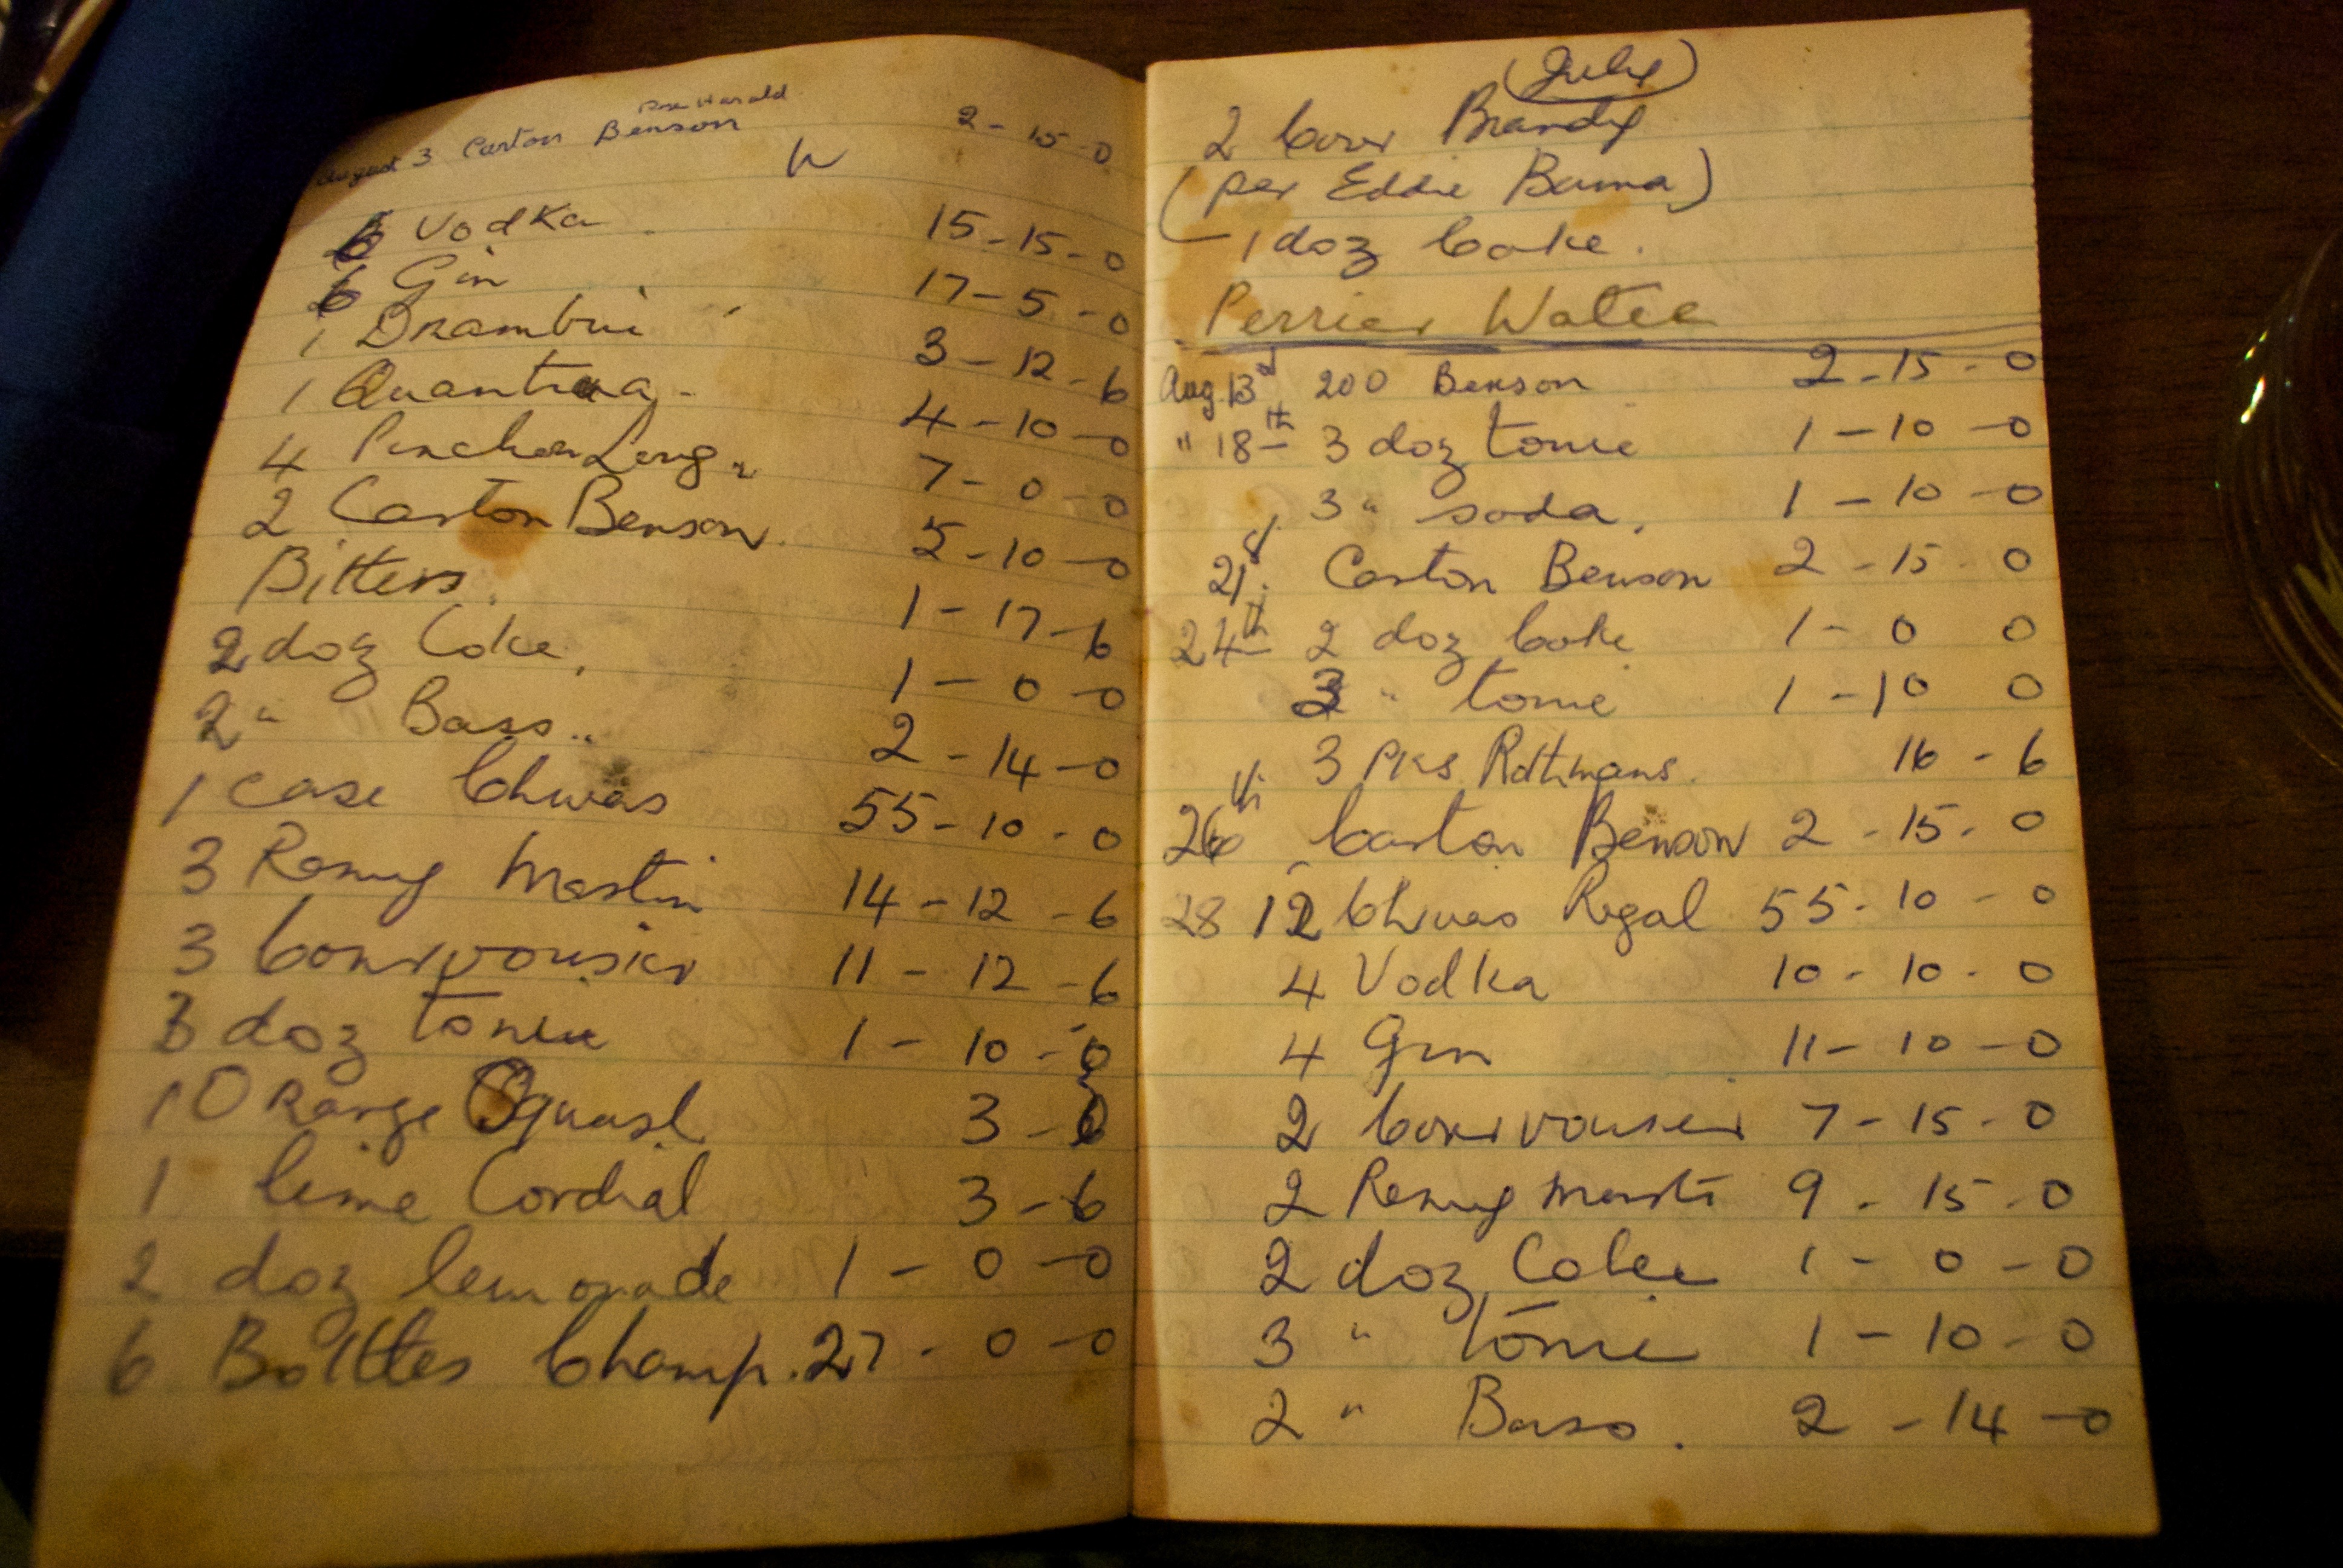 Harald
August 3 Carton Benson 2 - 15 - 0
6 Vodka 15 - 15 - 0
6 Gin 17 - 5 - 0
1 Drambui 3 - 12 - 6
1 4 - 10 - 0
4 7 - 0 - 0
2 Carton Benson 5 - 10 - 0
Bitters 1 - 17 - 6
2 doz Coke. 1 - 0 - 0
2 " Bass.. 2 - 14 - 0
1 case Chivas 55 - 10 - 0
3 Remy Martin 14 - 12 - 6
3 Courvousier 11 - 12 - 6
3 doz tonic 1 - 10 - 0
1 Orange Squash 3 - 6
1 lime Cordial 3 - 6
2 doz lemonade 1 - 0 - 0
6 Bolttes Champ. 27 - 0 - 0
(July)
2 Brandy
(per Eddie)
1 doz Coke.
Perrier Water
Aug. 13 200 Benson 2 - 15 - 0
" 18th 3 doz tonic 1 - 10 - 0
3 " soda. 1 - 10 - 0
21st Carton Benson 2 - 15 - 0
24th 2 doz Coke 1 - 0 0
3 " tonic 1 - 10 0
3 Pks Rothmans. 16 - 6
26th Carton Benson 2 - 15 - 0
28 12 Chivas Regal 55 - 10 - 0
4 Vodka 10 - 10 - 0
4 Gin 11 - 10 - 0
2 Courvousier 7 - 15 - 0
2 Remy Marti 9 - 15 - 0
2 doz Coke 1 - 0 - 0
3 " tonic 1 - 10 - 0
2 " Bass. 2 - 14 - 0